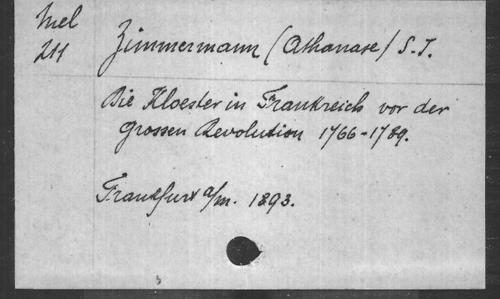 Mel
211
Zimmermann (Athanase) S.J.
Die Kloester in Frankreich vor der
grossen Revolution 1766-1789.
Frankfurt a/m. 1893.